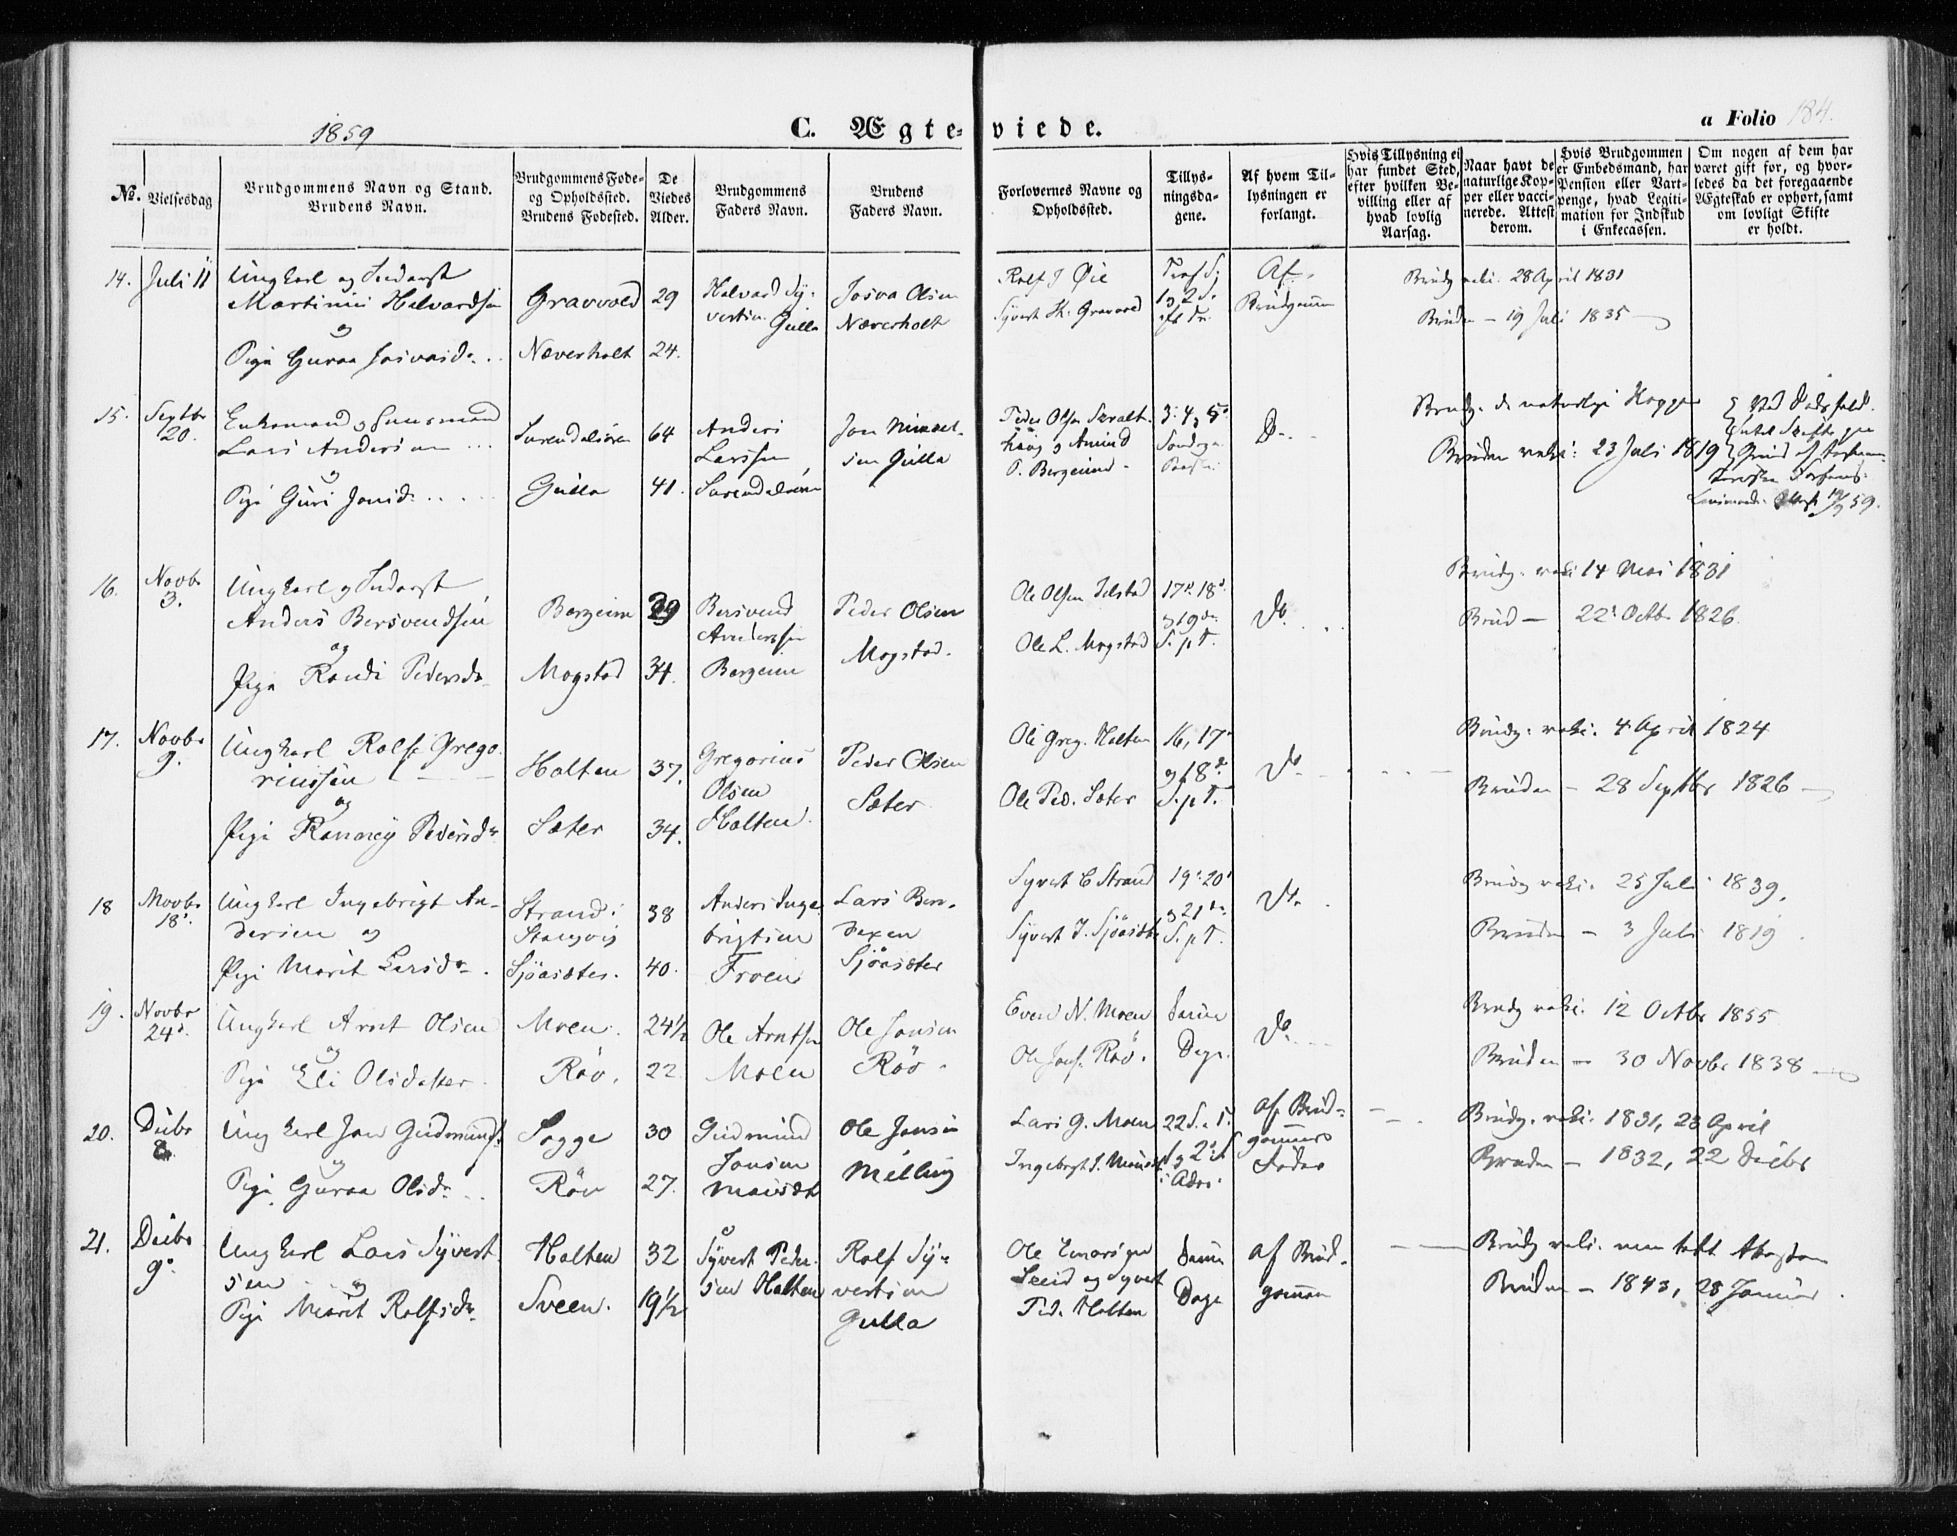 1859
C. Ægte-viede.
a Folio 184.
No.
Vielsesdag
Brudgommens Navn og Stand.
Brudens Navn.
Brudgommens Føde-
og Opholdssted.
Brudens Fødested.
De
Viedes
Alder.
Brudgommens
Faders Navn.
Brudens
Faders Navn.
Forlovernes Navne og
Opholdssted.
Tillys-
ningsda-
gene.
Af hvem Til-
lysningen er
forlangt.
Hvis Tillysning ei
har fundet Sted,
efter hvilken Be-
villing eller af
hvad lovlig
Aarsag.
Naar havt de
naturlige Kop-
per eller vacci-
nerede. Attest
derom.
Hvis Brudgommen
er Embedsmand, har
Pension eller Vart-
penge, hvad Legiti-
mation for Indskud
i Enkecassen.
Om nogen af dem har
været gift før, og hvor-
ledes da det foregaaende
Ægteskab er ophørt, samt
om lovligt Skifte
er holdt.
14. Juli 11
Ungkarl og Inderst
Martinus Halvardsen
og
Pige Guraa Josvasd.
Gravvold
Næverholt
29
24.
Halvard Sy-
vertsen Gulla
Josva Olsen
Næverholt
Rolf J Øie
Syvert H. Gravvold
1 og 2 S.
Af
Brudgommen
Brudg vaki. 28 April 1831
Bruden — 19 Juli 1835
15. Septbr
20.
Enkemand og Huusmand
Lars Andersen
og
Pige Guri Jonsd.
Surendalsøren
Gulla
64
41.
Anders
Larssen
Surendalsøren
Jon
sen Gulla
Peder Olsen
haug og Amund
P. Bergeim
3. 4 og 5
Søndag
Do
Brudg. de naturlige Kopper
Bruden vaki: 23 Juli 1819
Ved Dødsfald.
59.
16. Novbr
3.
Ungkarl og Inderst
Anders Bersvendsen
og
Pige Randi Pedersd.
Bergeim
Mogstad
29
34.
Bersvend
Anderssen
Bergeim
Peder Olsen
Mogstad.
Ole Olsen Telstad
Ole L. Mogstad
17. 18
og 19de
S. p. T.
Do
Brudg. vaki 14 Mai 1831
Brud — 22 Octbr 1826.
17. Novbr
9.
Ungkarl Rolf Grego-
riussen
og
Pige Rannei Pedersdr
Holten
Sæter
37.
34.
Gregorius
Olsen
Holten
Peder Olsen
Sæter
Ole Greg. Holten
Ole Ped. Sæter
16, 17
og 18de
S. p T.
Do
Brudg. vaki. 4 April 1824
Bruden — 28 Septbr 1826
18 Novbr
18.
Ungkarl Ingebrigt An-
dersen og
Pige Marit Larsdr.
Strand i
Stangvig
Sjøasæter.
38
40.
Anders Inge-
brigtsen
Froen
Lars Bern-
Sjøasæter
Syvert C Strand
Syvert J. Sjøasæter
19. 20
og 21de
S. p T.
Do
Brudg vaki. 25 Juli 1839.
Bruden — 3 Juli 1819.
19. Novbr
24.
Ungkarl Arnt Olsen
og
Pige Eli Olsdatter
Moen.
Røv.
24½
22
Ole Arntsen
Moen
Ole Jonsen
Røv.
Even N. Moen
Ole Jons. Røv.
Samme
Dage.
Do
Brudg vaki. 12 Octbr 1855
Bruden — 30 Novbr 1838
20. Decbr
8.
Ungkarl Jon Gudmunds.
og
Pige Guraa Olsdr
Sogge
Røv
30
27.
Gudmund
Jonsen
Ole Jonsen
Melling
Lars G. Moen
22 S. e T.
1 og 2 S.
i Adv.
af Brud-
gommens
Fader
Brudg. vaki. 1831, 23 April
Bruden — 1832, 22 Decbr
21. Decbr
9.
Ungkarl Lars Syvert
sen og
Pige Marit Rolfsdr
Holten
Sveen.
32
19½
Syvert Peder-
sen Holten
Rolf Sy-
vertsen
Gulla
Ole Einarsen
og Syvert
Ped. Holten
Samme
Dage
af Brud-
gommen
Brudg vaki. men tabt Attesten
Bruden — 1843, 28 Januar.